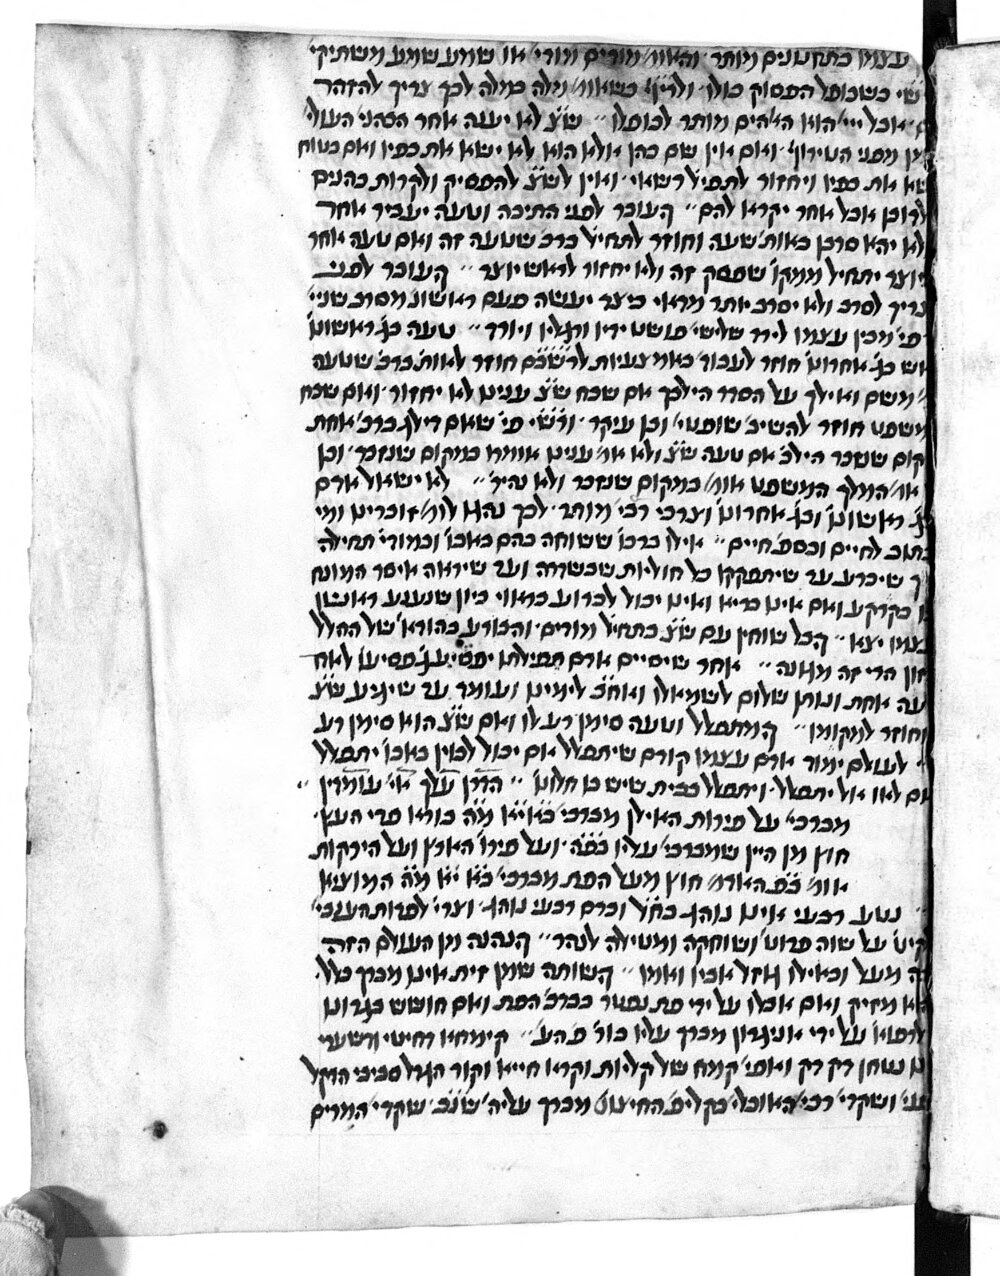 עצמו כתחנונים מותר והאומ' מודים מודי' או שמע שמע משתיקי'
שי' כשכופל הפסוק כולו ולרי"ף כשאומ' מילה במלה לכך צריך להזהר
אבל יי' הוא האלהים מותר לכופלו ״ ש״צ לא יענה אחר הכהני' העולי'
מן מפני הטירוף ואם אין שם כהן אלא הוא לא ישא את כפיו ואם בטוח
שא את כפיו ויחזור לתפיל' רשאי ואין לש״צ להפסיק ולקרות כהנים
לדוכן אבל אחר יקרא להם ״ העובר לפני התיבה וטעה יעביר אחר
לא יהא סרבן באות' שעה וחוזר לתחיל' ברכ' שטעה זה ואם טעה אחר
יוצר יתחיל ממקו' שפסק זה ולא יחזור לראש יוצר ״ העובר לפני
צריך לסרב ולא יסרב יותר מדאי כיצד יעשה פעם ראשונ' מסרב שניי'
פי' מכין עצמו לירד שלישי' פושט ידיו ורגליו ויורד ״ טעה בג' ראשונו'
אש בג' אחרונו' חוזר לעבוד' באמצעיות לרש״בם חוזר לאות' ברכ' שטעה
משם ואילך על הסדר הילכך אם שכח ש״צ ענינו לא יחזור ואם שכח
משפט חוזר להשיב' שופטי' וכן עיקר ורש״י פי' שאם דילג ברכ' אחת
קום שנזכר הילכ' אם טעה ש״צ ולא אמ' ענינו אומרו במקום שנזכר וכן
אמ' המלך המשפט אומ' במקום שנזכר ולא נהיר' ״ לא ישאל אדם
בג' ראשונו' ובג' אחרונו' וצרכי רבי' מותר לכך נהגו לומ' זוכרינו ומי
כתוב לחיים ובספ' חיים ״ אילו ברכו' ששוחה בהם באבו' ובמודי' תחילה
ך שיכרע עד שיתפקקו כל חוליות שבשדרה ועד שיראה איסר המונח
בקרקע ואם אינו בריא ואינו יכול לכרוע כראוי כיון שנענע ראשו
עצמו יצא ״ הכל שוחין עם ש״צ כתחיל' מודים והכורע בהודא' של הלל
זון הרי זה מגונה ״ אחר שיסיים אדם תפילתו יפסיע ג' פסיעו' לאח'
עה אחת ונותן שלום לשמאלו ואח״כ לימינו ועומד עד שיגיע ש״צ
וחוזר למקומו ״ המתפלל וטעה סימן רע לו ואם ש״צ הוא סימן רע
לעולם ימוד אדם עצמו קודם שיתפלל אם יכול לכוין באבו' יתפלל
אם לאו אל יתפלל ויתפלל בבית שיש בו חלונו' ״ הדרן עלך אי' עומדין ״
מברכי' על פירות האילן מברכי' בא״י א״מ״ה בורא פרי העץ
חוץ מן היין שמברכי' עליו בפ״ה ועל פירו' הארץ ועל הירקות
אומ' בפ״ האדמ' חוץ מעל הפת מברכי' בא״י א״מה המוציא
נטע רבעי אינו נוהג בח״ל וכרם רבעי נוהג וצרי' לפדות הענבי'
על שוה פרוט' ושוחקה ומטילה לנהר ״ הנהנה מן העולם הזה
מעל וכאילו גוזל אביו ואמו ״ השותה שמן זית אינו מברך כלל
א מזיק ואם אוכלו על ידי פת נפטר בברכ' הפת ואם חושש בגרונו
לרפוא' על ידי אניגרון מברך עליו בור' פ' הע' ״ קימחא דחיטי ודשערי
נו נטחן דק דק ואפי' קמח של קליות וקרא חייא וקור הגדל סביבי הדקל
ושקדי' רכי' האוכלי' בקליפ' החיצונ' מברך עליה' שנ״ב שקדי' המרים